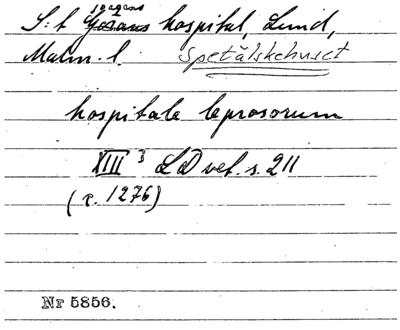 S:t Jörgens hospital, Lund,
Malm. l. Spetälskehuset
hospitale leprosorum
XIII 3 LD vet. s. 211
(r. 1276)
Nr 5856.